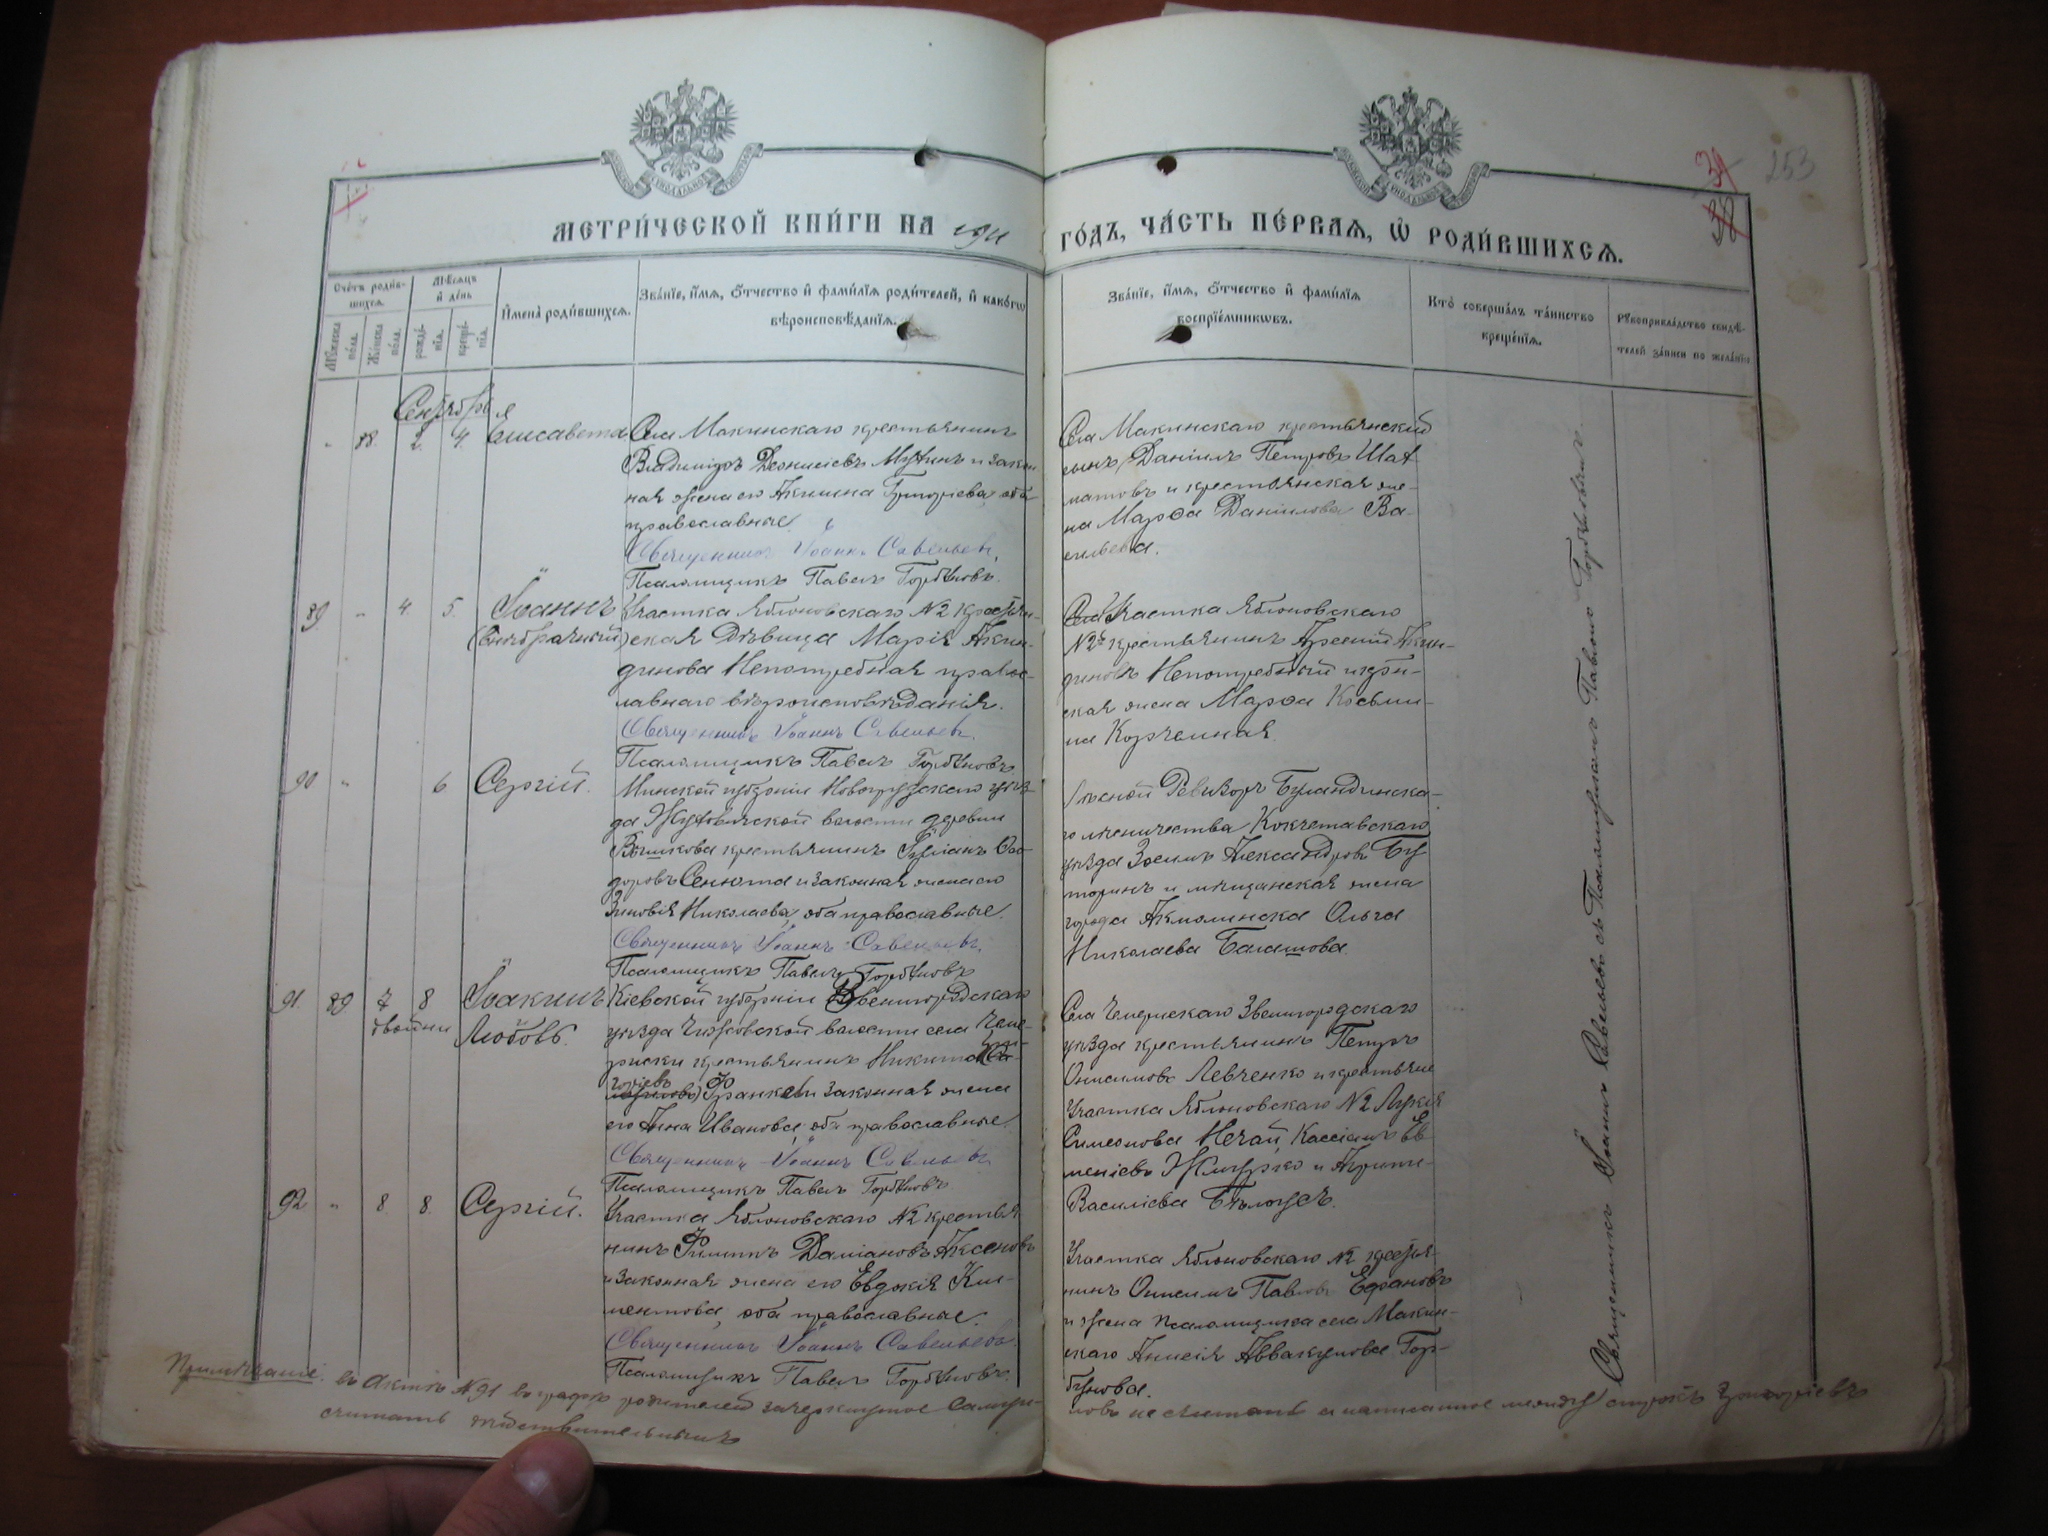 МЕТРИ́ЧЕСКОЙ КНИ́ГИ НА 1911
ГО́ДЪ, ЧА́СТЬ ПЕ́РВАЯ, Ѽ РОДИ́ВШИХСЯ.
253
Сче́тъ роди́в-
шихся.
Мѣ́сяцъ
и҆ де́нь
Мꙋ́жеска
по́ла.
Же́нска
по́ла.
рожде́-
нїѧ.
креще́-
нїѧ.
И҆мена̀ роди́вшихся.
Зва́нїе, и҆́мѧ, ѻ҆́тчество и҆ фами́лїѧ роди́телей, и҆ како́гѡ
вѣроисповѣ́данїѧ.
Зва́нїе, и҆́мѧ, ѻ҆́тчество и҆ фами́лїѧ
воспрїе́мникѡвъ.
Кто̀ соверша́лъ та́инство
креще́нїѧ.
Рꙋкоприкла́дство свидѣ́-
телей за́писи по жела́нїю
Сентябрь
88. 2. 4. Елисавета
Села Макинскаго крестьянинъ
Владиміръ Діонисіевъ Мутинъ и закон
ная жена его Акилина Григоріева, оба
православные.
Священникъ Іоаннъ Савельевъ.
Псаломщикъ Павелъ Горбуновъ.
Села Макинскаго крестьянскій
сынъ Даніилъ Петровъ Шах
матовъ и крестьянская же-
на Марѳа Даниилова Ва-
сильева.
89. " 4 5. Іоаннъ
(внѣбрачный)
Участка Яблоновскаго №2 крестьян-
ская дѣвица Марія Акин-
динова Непотребная право-
славнаго вѣроисповѣданія.
Священникъ Іоаннъ Савельевъ.
Псаломщикъ Павелъ Горбуновъ.
Участка Яблоновскаго
№2й крестьянинъ Арсеній Акин-
диновъ Непотребный и
ская жена Марѳа Косьми-
на Корчемная.
90 " 6 Сергій.
Минской губерніи Новогрудскаго уѣз-
да волости деревни
крестьянинъ Ѳео-
доровъ Сенюта и законная жена его
Зиновія Николаева, оба православные.
Священникъ Іоаннъ Савельевъ.
Псаломщикъ Павелъ Горбуновъ
Лѣсной Ревизоръ Буландинска-
го лѣсничества Кокчетавскаго
уѣзда Александровъ Бу
торинъ и мѣщанская жена
города Акмолинска Ольга
Николаева Балашова.
91. 89 7 8 Іоакимъ
двойни и Любовь.
Кіевской губерніи Звенигородскаго
уѣзда Чижовской волости села Чеме-
риски крестьянинъ Никита
горіевъ
Франко и законная жена
его Анна Иванова, оба православные.
Священникъ Іоаннъ Савельевъ.
Псаломщикъ Павелъ Горбуновъ
Села Чемерискаго Звенигородскаго
уѣзда крестьянинъ Петръ
Онисимовъ Левченко и крестьяне
Участка Яблоновскаго №2 Лукія
Симеонова Нечай, Кассіанъ Ев
меніевъ и
Василіева Бѣлоусъ.
92 " 8 8. Сергій.
Участка Яблоновскаго №2 крестья-
нинъ Филиппъ Даміановъ Аксеновъ
и законная жена его Евдокія Кли-
ментова, оба православные.
Священникъ Іоаннъ Савельевъ
Псаломщикъ Павелъ Горбуновъ.
Участка Яблоновскаго №2 крестья-
нинъ Онисимъ Павловъ
и жена псаломщика села Макин-
скаго Анисія Аввакумова Гор-
бунова.
Священникъ Іоаннъ Савельевъ съ Псаломщикомъ Павломъ Горбуновымъ.
Примѣчаніе: въ актѣ №91 въ графѣ родителей зачеркнутое Самуи-
ловъ не считать а написанное между строкъ Григоріевъ
считать дѣйствительнымъ